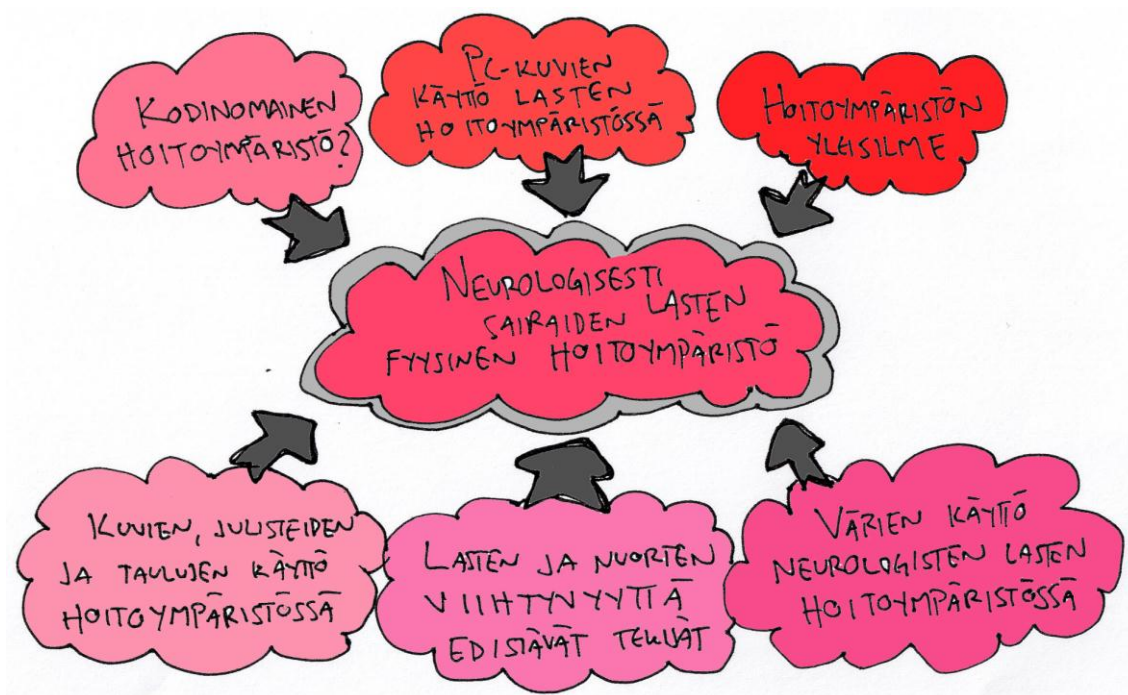 KODINOMAINEN
HOITOYMPÄRISTÖ?
PC-KUVIEN
KÄYTTÖ LASTEN
HOITOYMPÄRISTÖSSÄ
HOITOYMPÄRISTÖN
YLEISILME
NEUROLOGISESTI
SAIRAIDEN LASTEN
FYYSINEN HOITOYMPÄRISTÖ
KUVIEN, JULISTEIDEN
JA TAULUJEN KÄYTTÖ
HOITOYMPÄRISTÖSSÄ
LASTEN JA NUORTEN
VIIHTYVYYTTÄ
EDISTÄVÄT TEKIJÄT
VÄRIEN KÄYTTÖ
NEUROLOGISTEN LASTEN
HOITOYMPÄRISTÖSSÄ